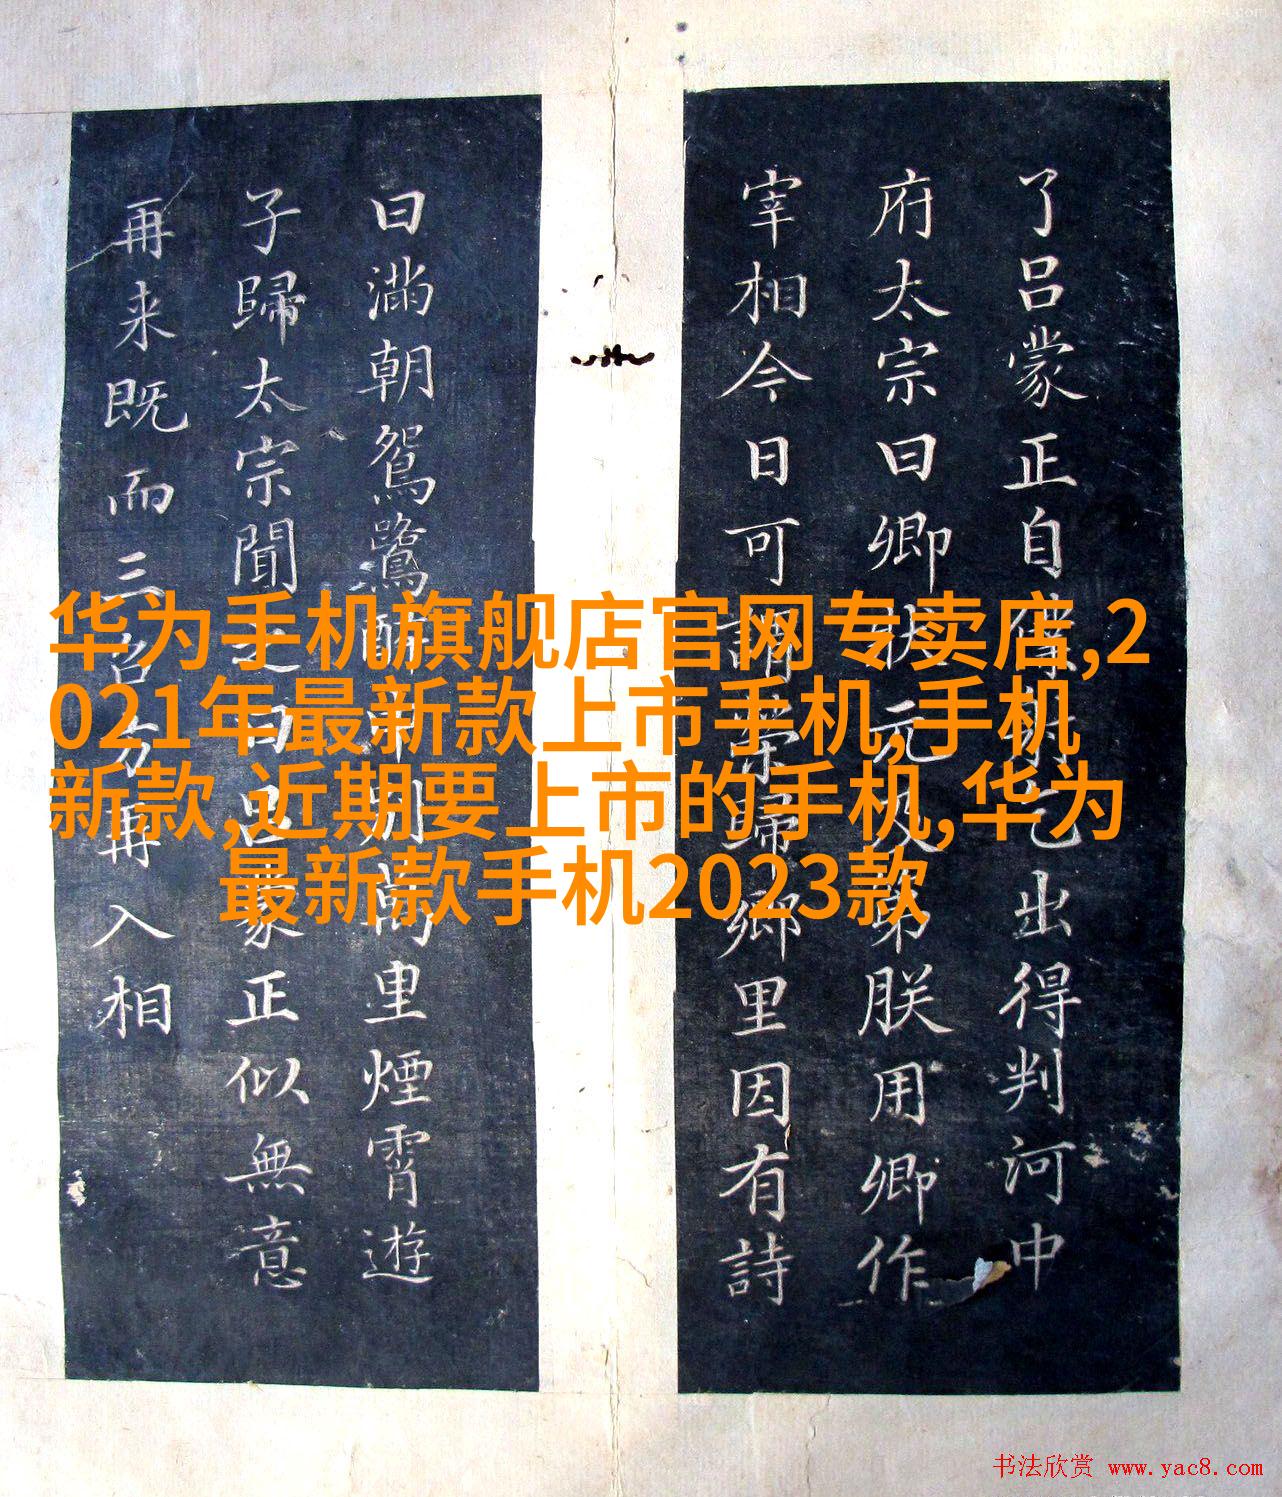 了呂蒙正自僕射乞出得判河中
府太宗曰卿狀元及第朕用卿作
宰相今日可謂榮歸鄉里因有詩
曰滿朝鴛鷺醉中別萬里煙霄遊
子歸太宗聞之曰呂蒙正似無意
再来既而三召方再入相
华为手机旗舰店官网专卖店,2
021年最新款上市手机,手机
新款,近期要上市的手机,华为
最新款手机2023款
书法欣赏 www.yac8.com